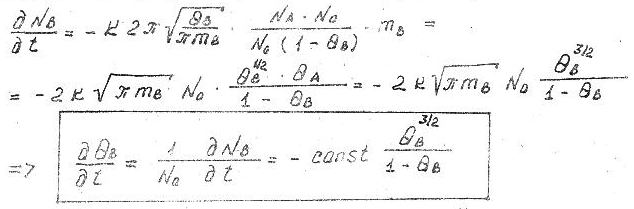 ∂N_B/∂t = - K 2π √(θ_B/(π m_B)) · (N_A · N_0)/(N_0 (1 - θ_B)) · m_B =
= - 2K √(π m_B) N_0 (θ_B^{1/2} · θ_A)/(1 - θ_B) = - 2K √(π m_B) N_0 θ_B^{3/2}/(1 - θ_B)
=> ∂θ_B/∂t = 1/N_0 ∂N_B/∂t = - const θ_B^{3/2}/(1 - θ_B)